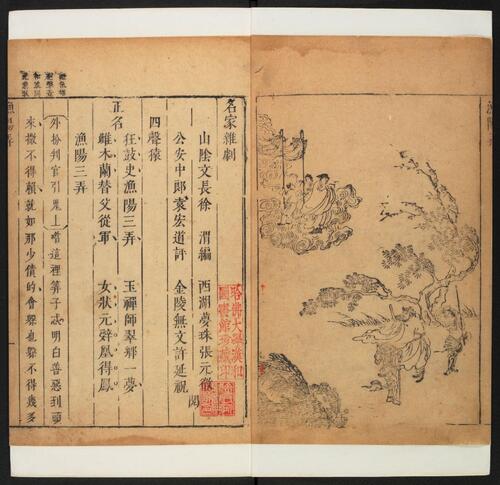 名家雜劇
山陰文長徐　渭編　西湖夢珠張元徵
公安中郎袁宏道評　金陵無文許延祝　閱
四聲猿
狂鼓史漁陽三弄　玉禪師翠鄉一夢
正名
雌木蘭替父從軍　女狀元辭凰得鳳
漁陽三弄
外扮判官引鬼上唱這裡筭子忒明白善惡到頭
來撒不得賴就如那少債的會躲也躲不得幾多
哈佛大學漢和
圖書館珍藏印